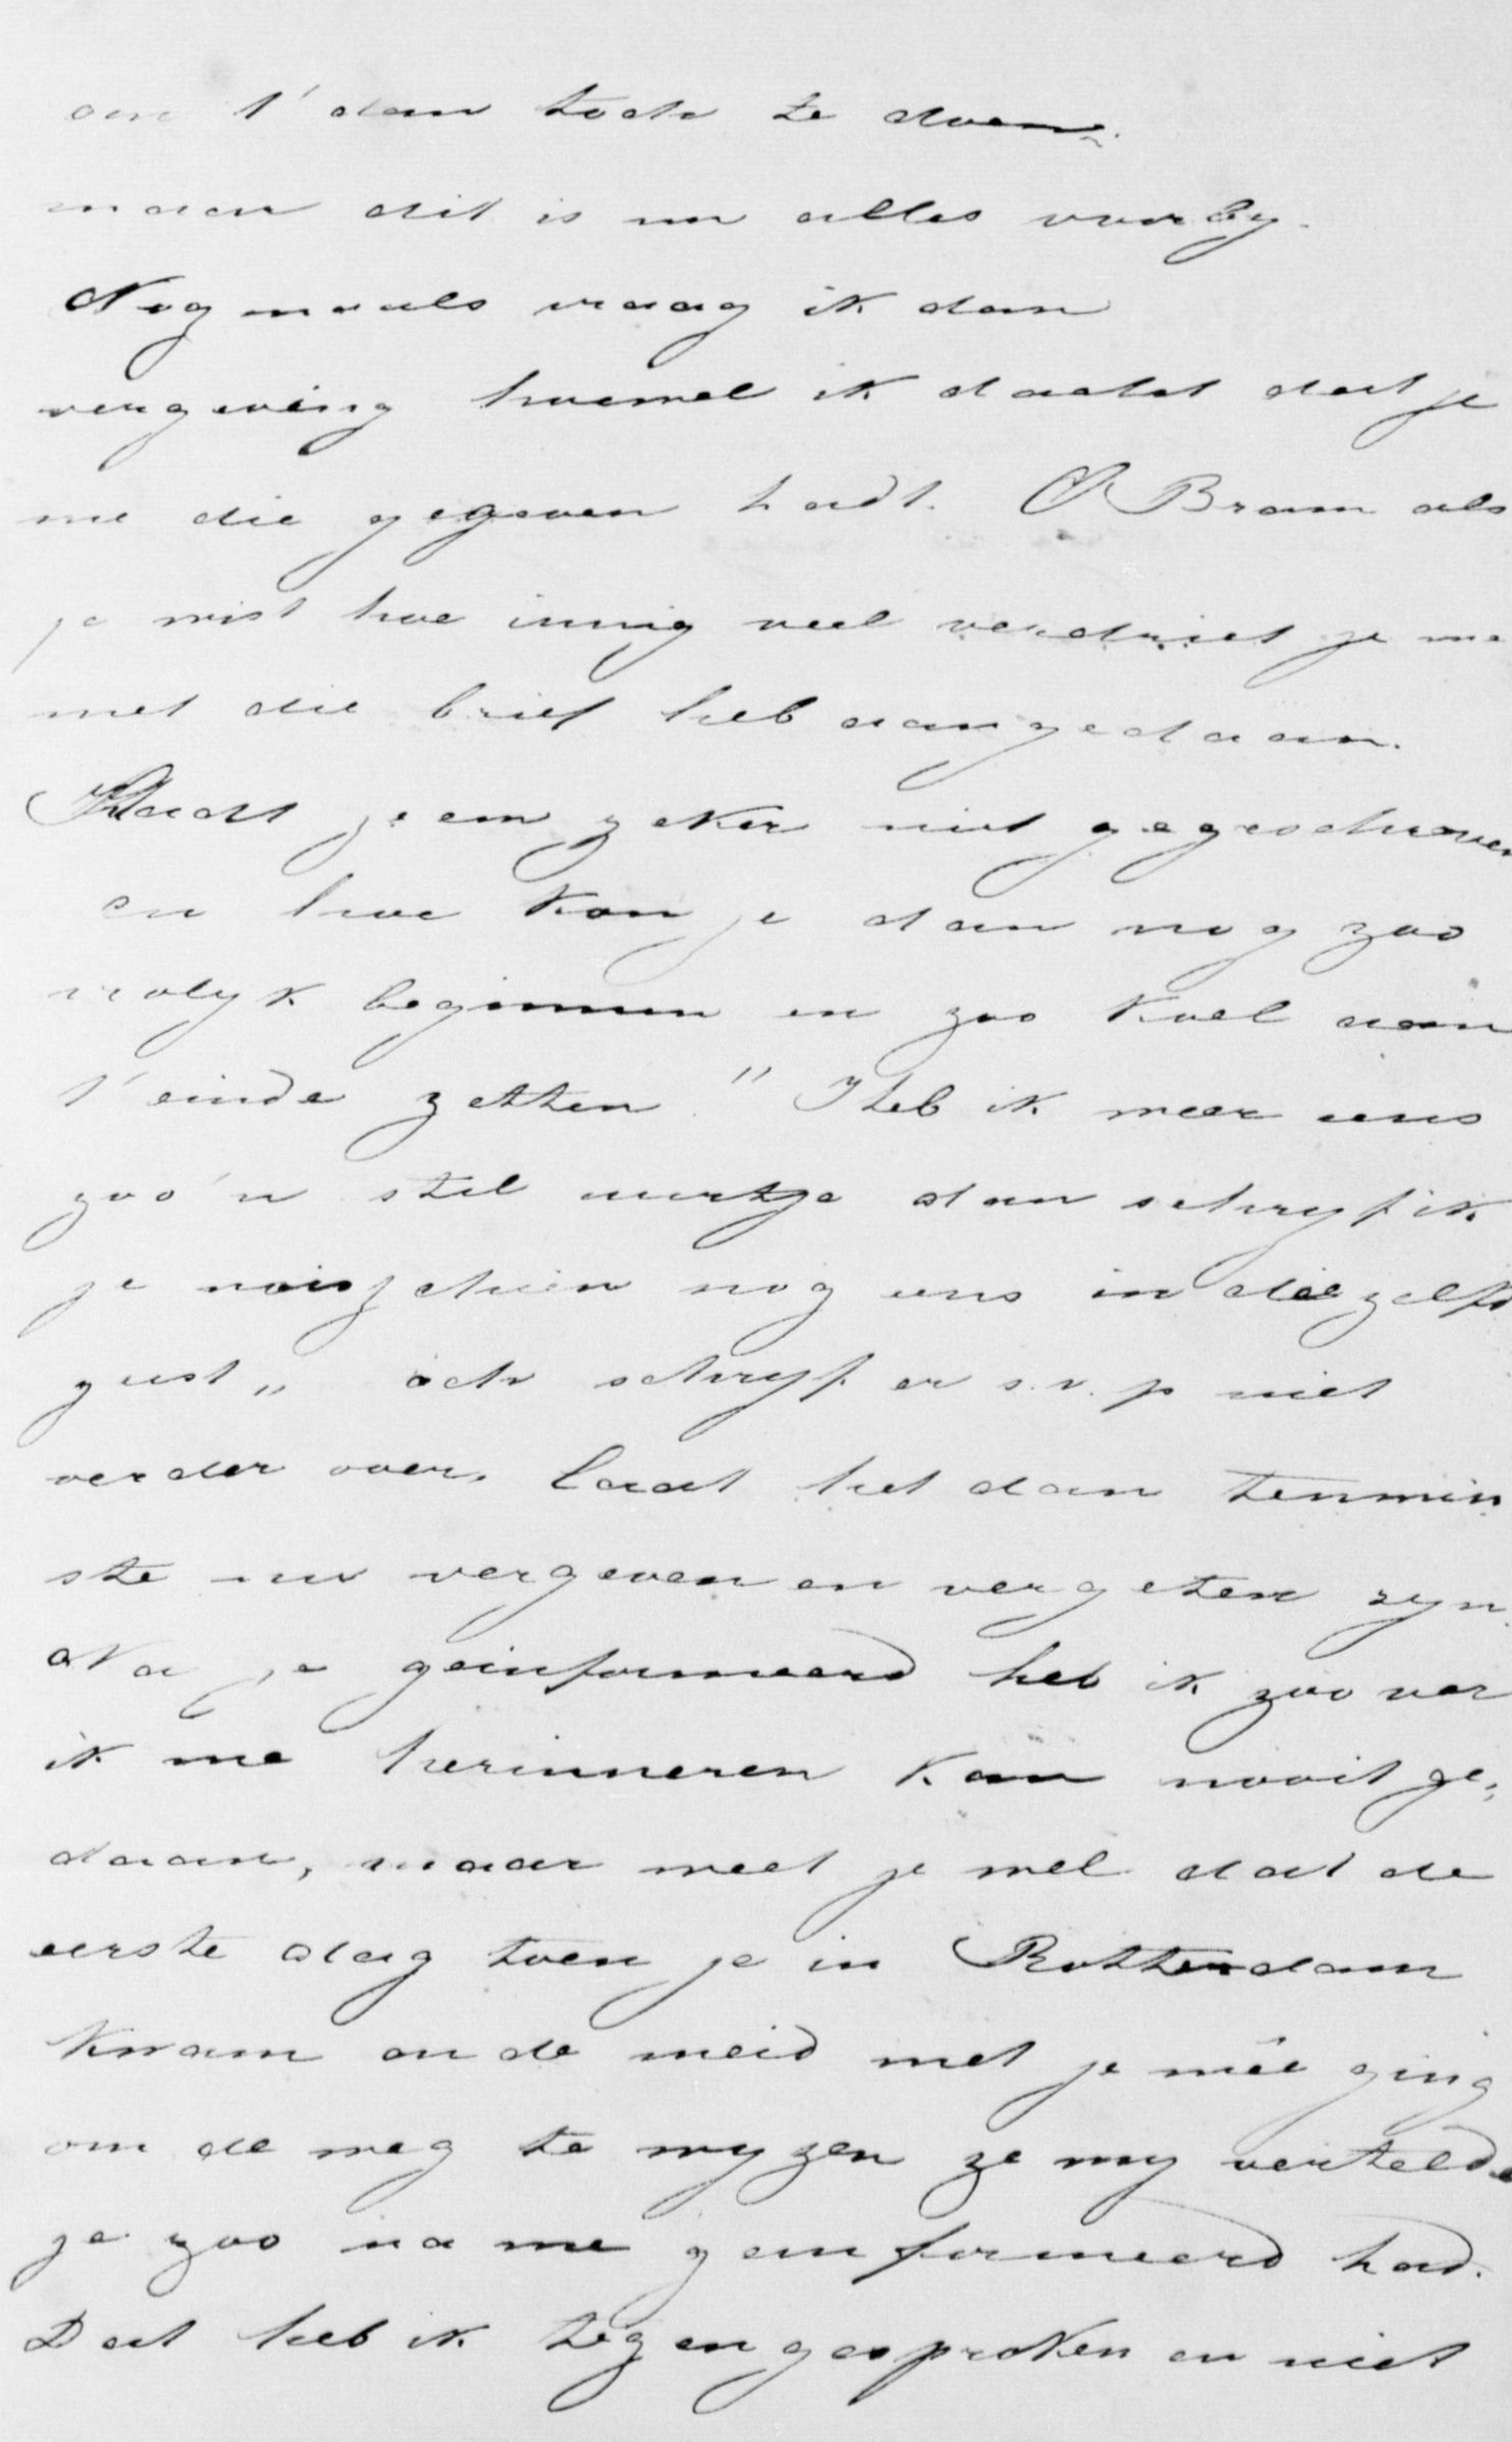 om t' dan toch te doen.
maar dit is nu alles voorby.
Nogmaals vraag ik dan
vergeving hoewel ik dacht dat je
me die gegeven hadt. O Bram als
je wist hoe innig veel verdriet je me
met die brief heb aangedaan.
Hadt je em zeker niet gegeschreven
en hoe kon je dan nog zoo
vrolyk beginnen en zoo koel aan
t' einde zetten " Heb ik weer eens
zoo'n stil uurtje dan schryf ik
je misschien nog eens in diezelfde
geest „ och schryf er s.v.p niet
verder over. Laat het dan tenmin
ste nu vergeven en vergeten zyn.
Na je geinformeerd heb ik zoo ver
ik me herinneren kan nooit ge,
daan, maar weet je wel dat de
eerste dag toen je in Rotterdam
kwam en de meid met je mêe ging
om de weg te wyzen ze my vertelde
je zoo na me geinformeerd had.
Dat heb ik tegengesproken en niet